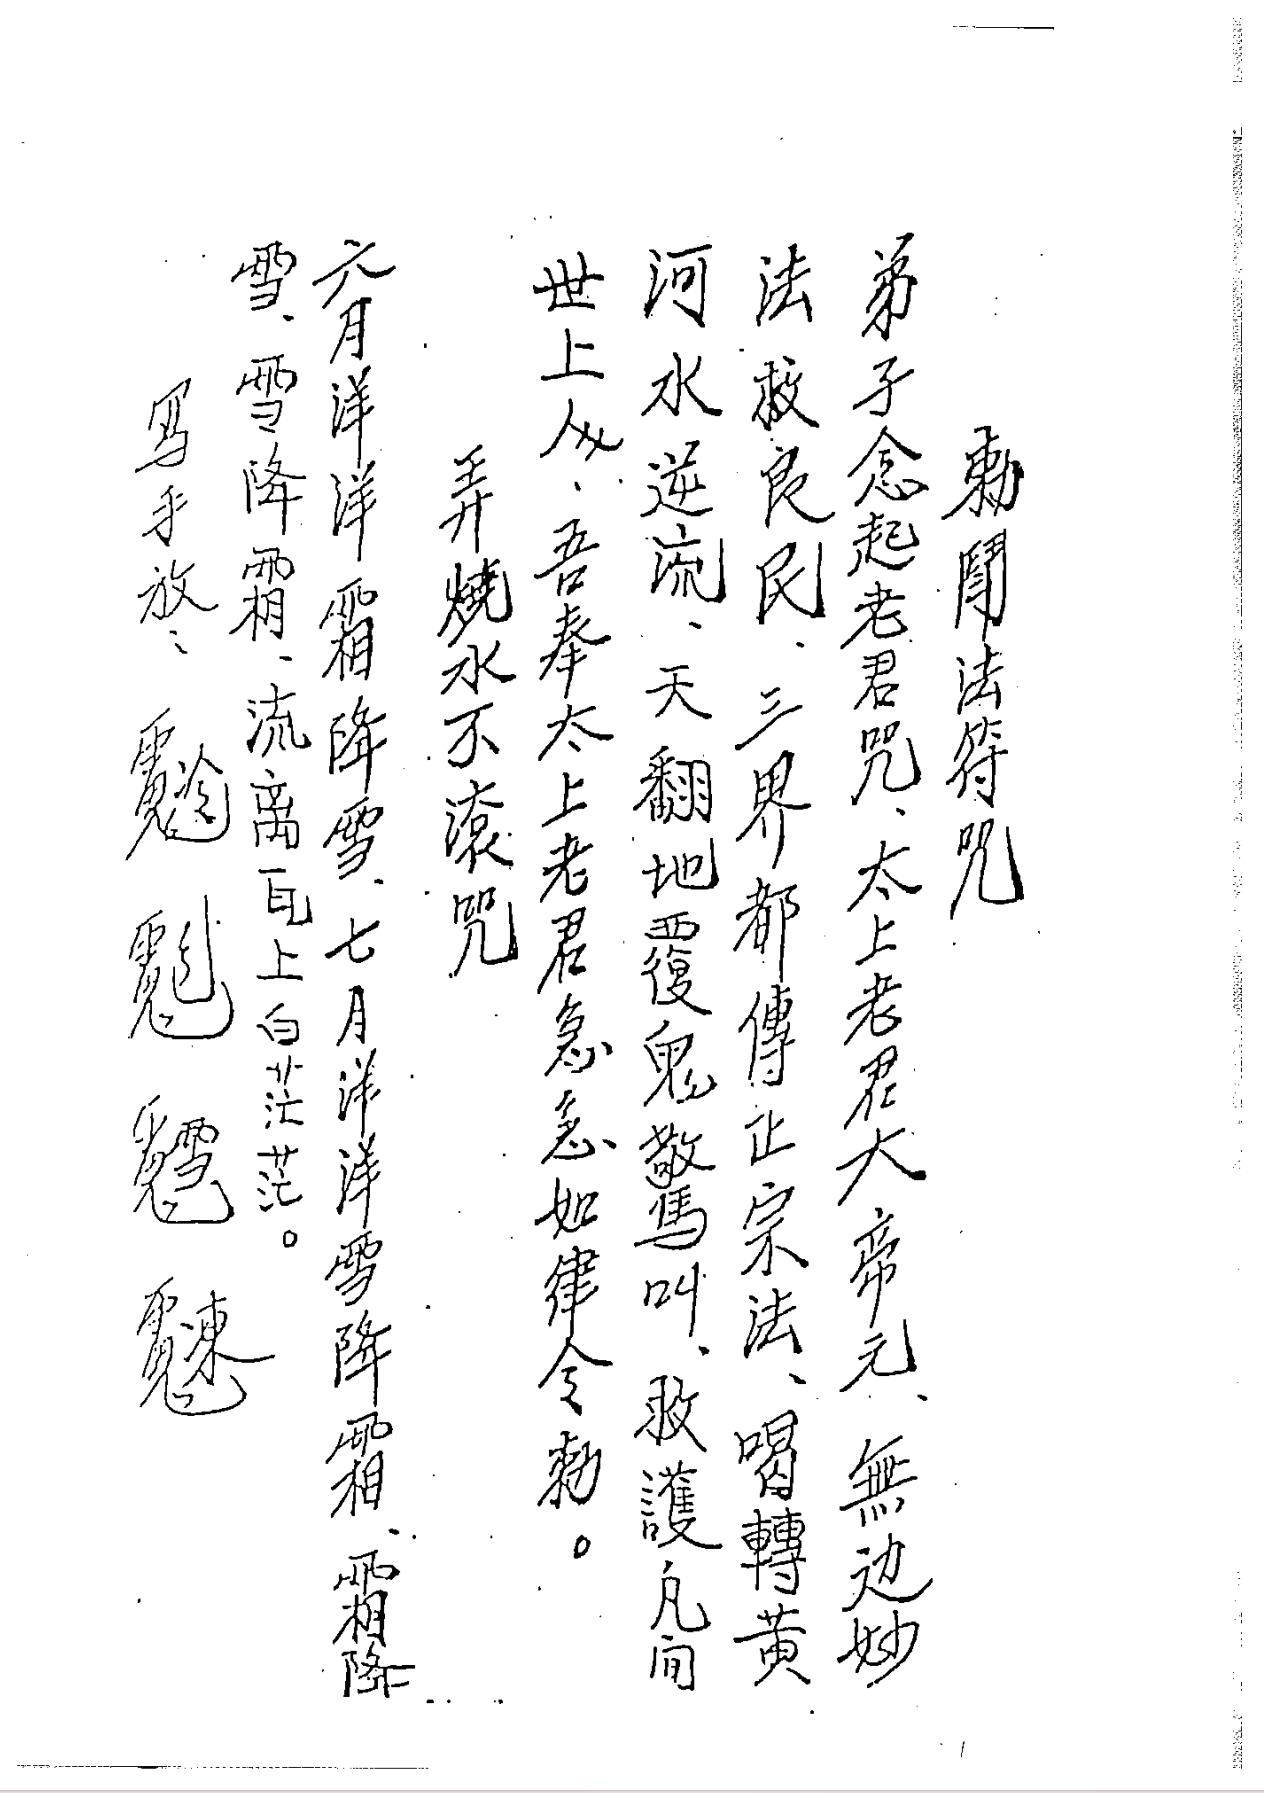 勅鬧法符咒
弟子念起老君咒、太上老君大帝元、無边妙
法救良民、三界都傳正宗法、喝轉黃
河水逆流、天翻地覆鬼驚叫、救護凡间
世上人、吾奉太上老君急急如律令勅。
弄燒水不滚咒
六月洋洋霜降雪、七月洋洋雪降霜、霜降
雪、雪降霜、流离瓦上白茫茫。
写手放、